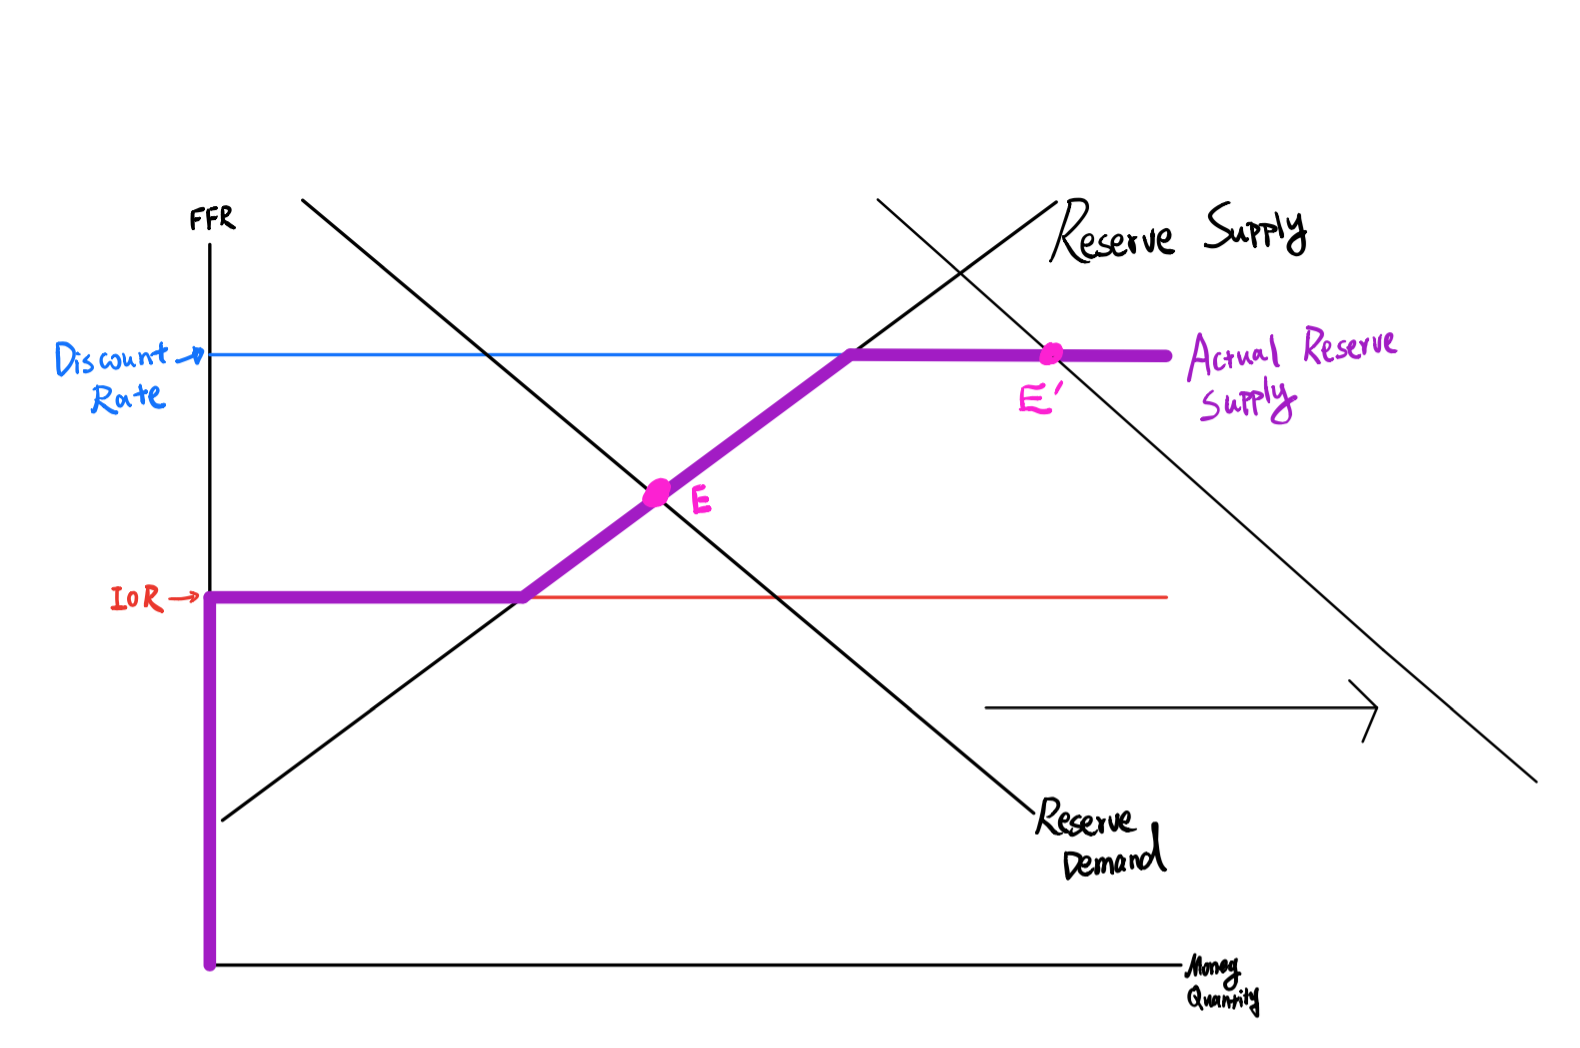 FFR
Reserve Supply
Discount
Rate
Actual Reserve
Supply
E'
E
IOR
Reserve
Demand
Money
Quantity